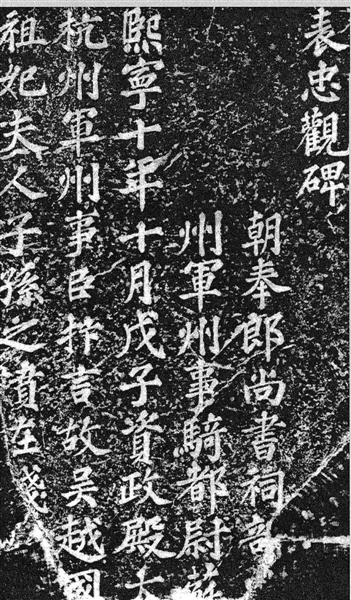 表忠觀碑
朝奉郎尚書祠部
州軍州事騎都尉蘇
熙寧十年十月戊子資政殿大
杭州軍州事臣抃言故吳越國
祖妣夫人子孫之墳在錢